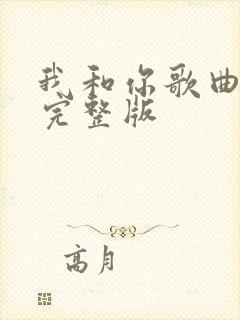 我和你歌曲
完整版
高月